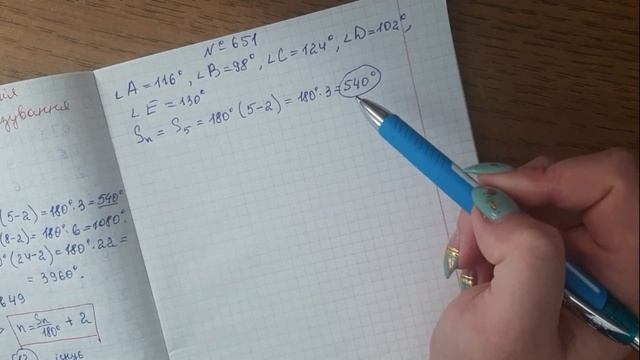 № 651
∠A = 116°, ∠B = 98°, ∠C = 124°, ∠D = 102°,
∠E = 130°
Sₙ = S₅ = 180° (5-2) = 180° · 3 = 540°
(5-2) = 180° · 3 = 540°
(8-2) = 180° · 6 = 1080°.
(24-2) = 180° · 22 =
= 3960°.
n = Sₙ/180° + 2